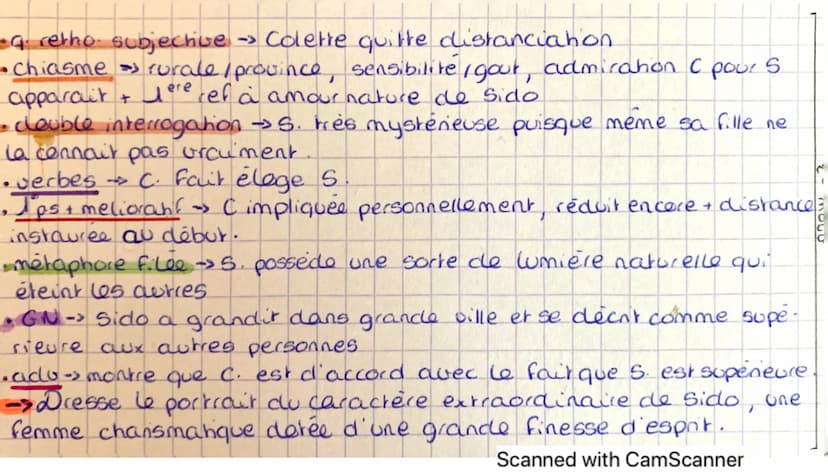 • q retho subjective -> Colette quitte distanciation
• chiasme => rurale/province, sensibilité/gout, admiration C pour S
apparait + 1ere ref à amour nature de Sido
• double interrogation -> S. très mystérieuse puisque même sa fille ne
la connait pas vraiment.
• verbes -> C. fait éloge S.
• 1ps + mélioratif -> C impliquée personnellement, réduit encore + distance
instaurée au début.
• métaphore filée -> S. possède une sorte de lumière naturelle qui
éteint les autres
• GN -> Sido a grandit dans grande ville et se décrit comme supé-
rieure aux autres personnes
• adv -> montre que C. est d'accord avec le fait que S. est supérieure.
-> Dresse le portrait du caractère extraordinaire de Sido, une
femme charismatique dotée d'une grande finesse d'esprit.
Scanned with CamScanner